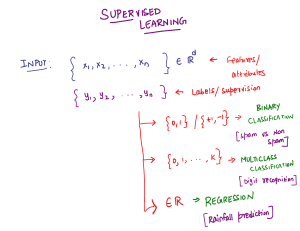 SUPERVISED
LEARNING
INPUT: { x₁, x₂, ..., xₙ } ∈ ℝᵈ ← features/
attributes
{ y₁, y₂, ..., yₙ } ← Labels/supervision
→ {0,1} / {+1,-1} → BINARY
CLASSIFICATION
[Spam vs Non
Spam]
→ {0,1,...,K} → MULTICLASS
CLASSIFICATION
[Digit recognition]
→ ∈ ℝ → REGRESSION
[Rainfall prediction]